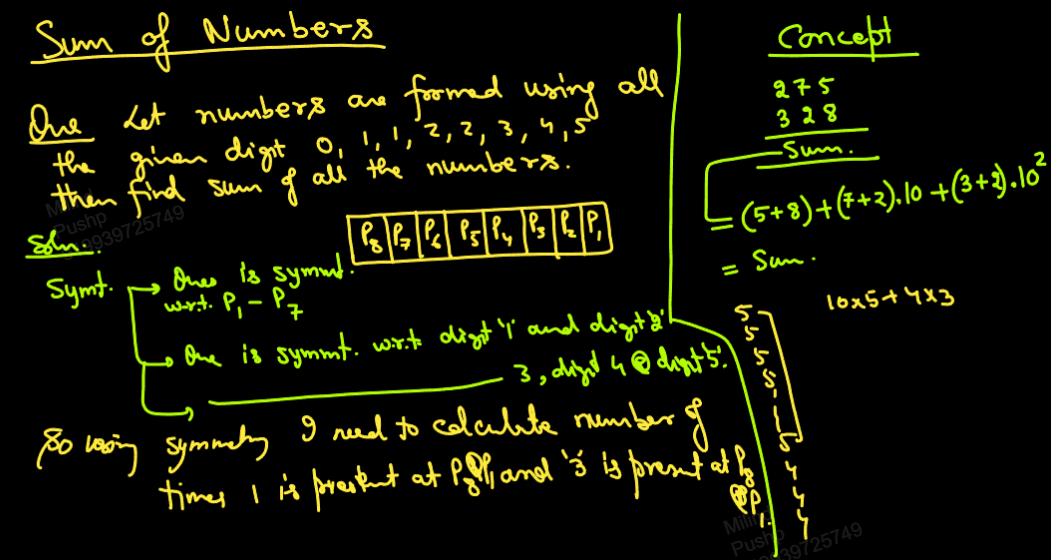 Sum of Numbers
Que Let numbers are formed using all
the given digit 0, 1, 1, 2, 2, 3, 4, 5
then find sum of all the numbers.
Soln.
P8 P7 P6 P5 P4 P3 P2 P1
Symt. → Ques is symmt.
w.r.t. P1 - P7
→ Que is symmt. w.r.t. digit '1' and digit '2'
→ 3, digit 4 @ digit '5'.
So using symmetry I need to calculate number of
times 1 is present at P8 @ P1 and '3' is present at P8
@ P1.
Concept
275
328
Sum.
= (5+8)+(7+2).10+(3+2).10²
= Sum.
10×5+4×3
5
5
5
5
5
4
4
4
Pushp
9939725749
Pushp
39725749